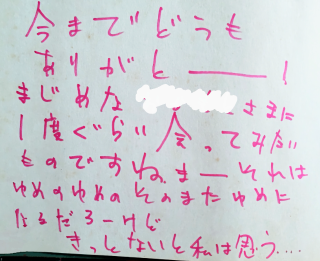 今までどうも
ありがとー!
まじめな さまに
1度ぐらい会ってみたい
ものですね。まーそれは
ゆめのゆめのそのまたゆめに
なるだろーけど
きっとないと私は思う....